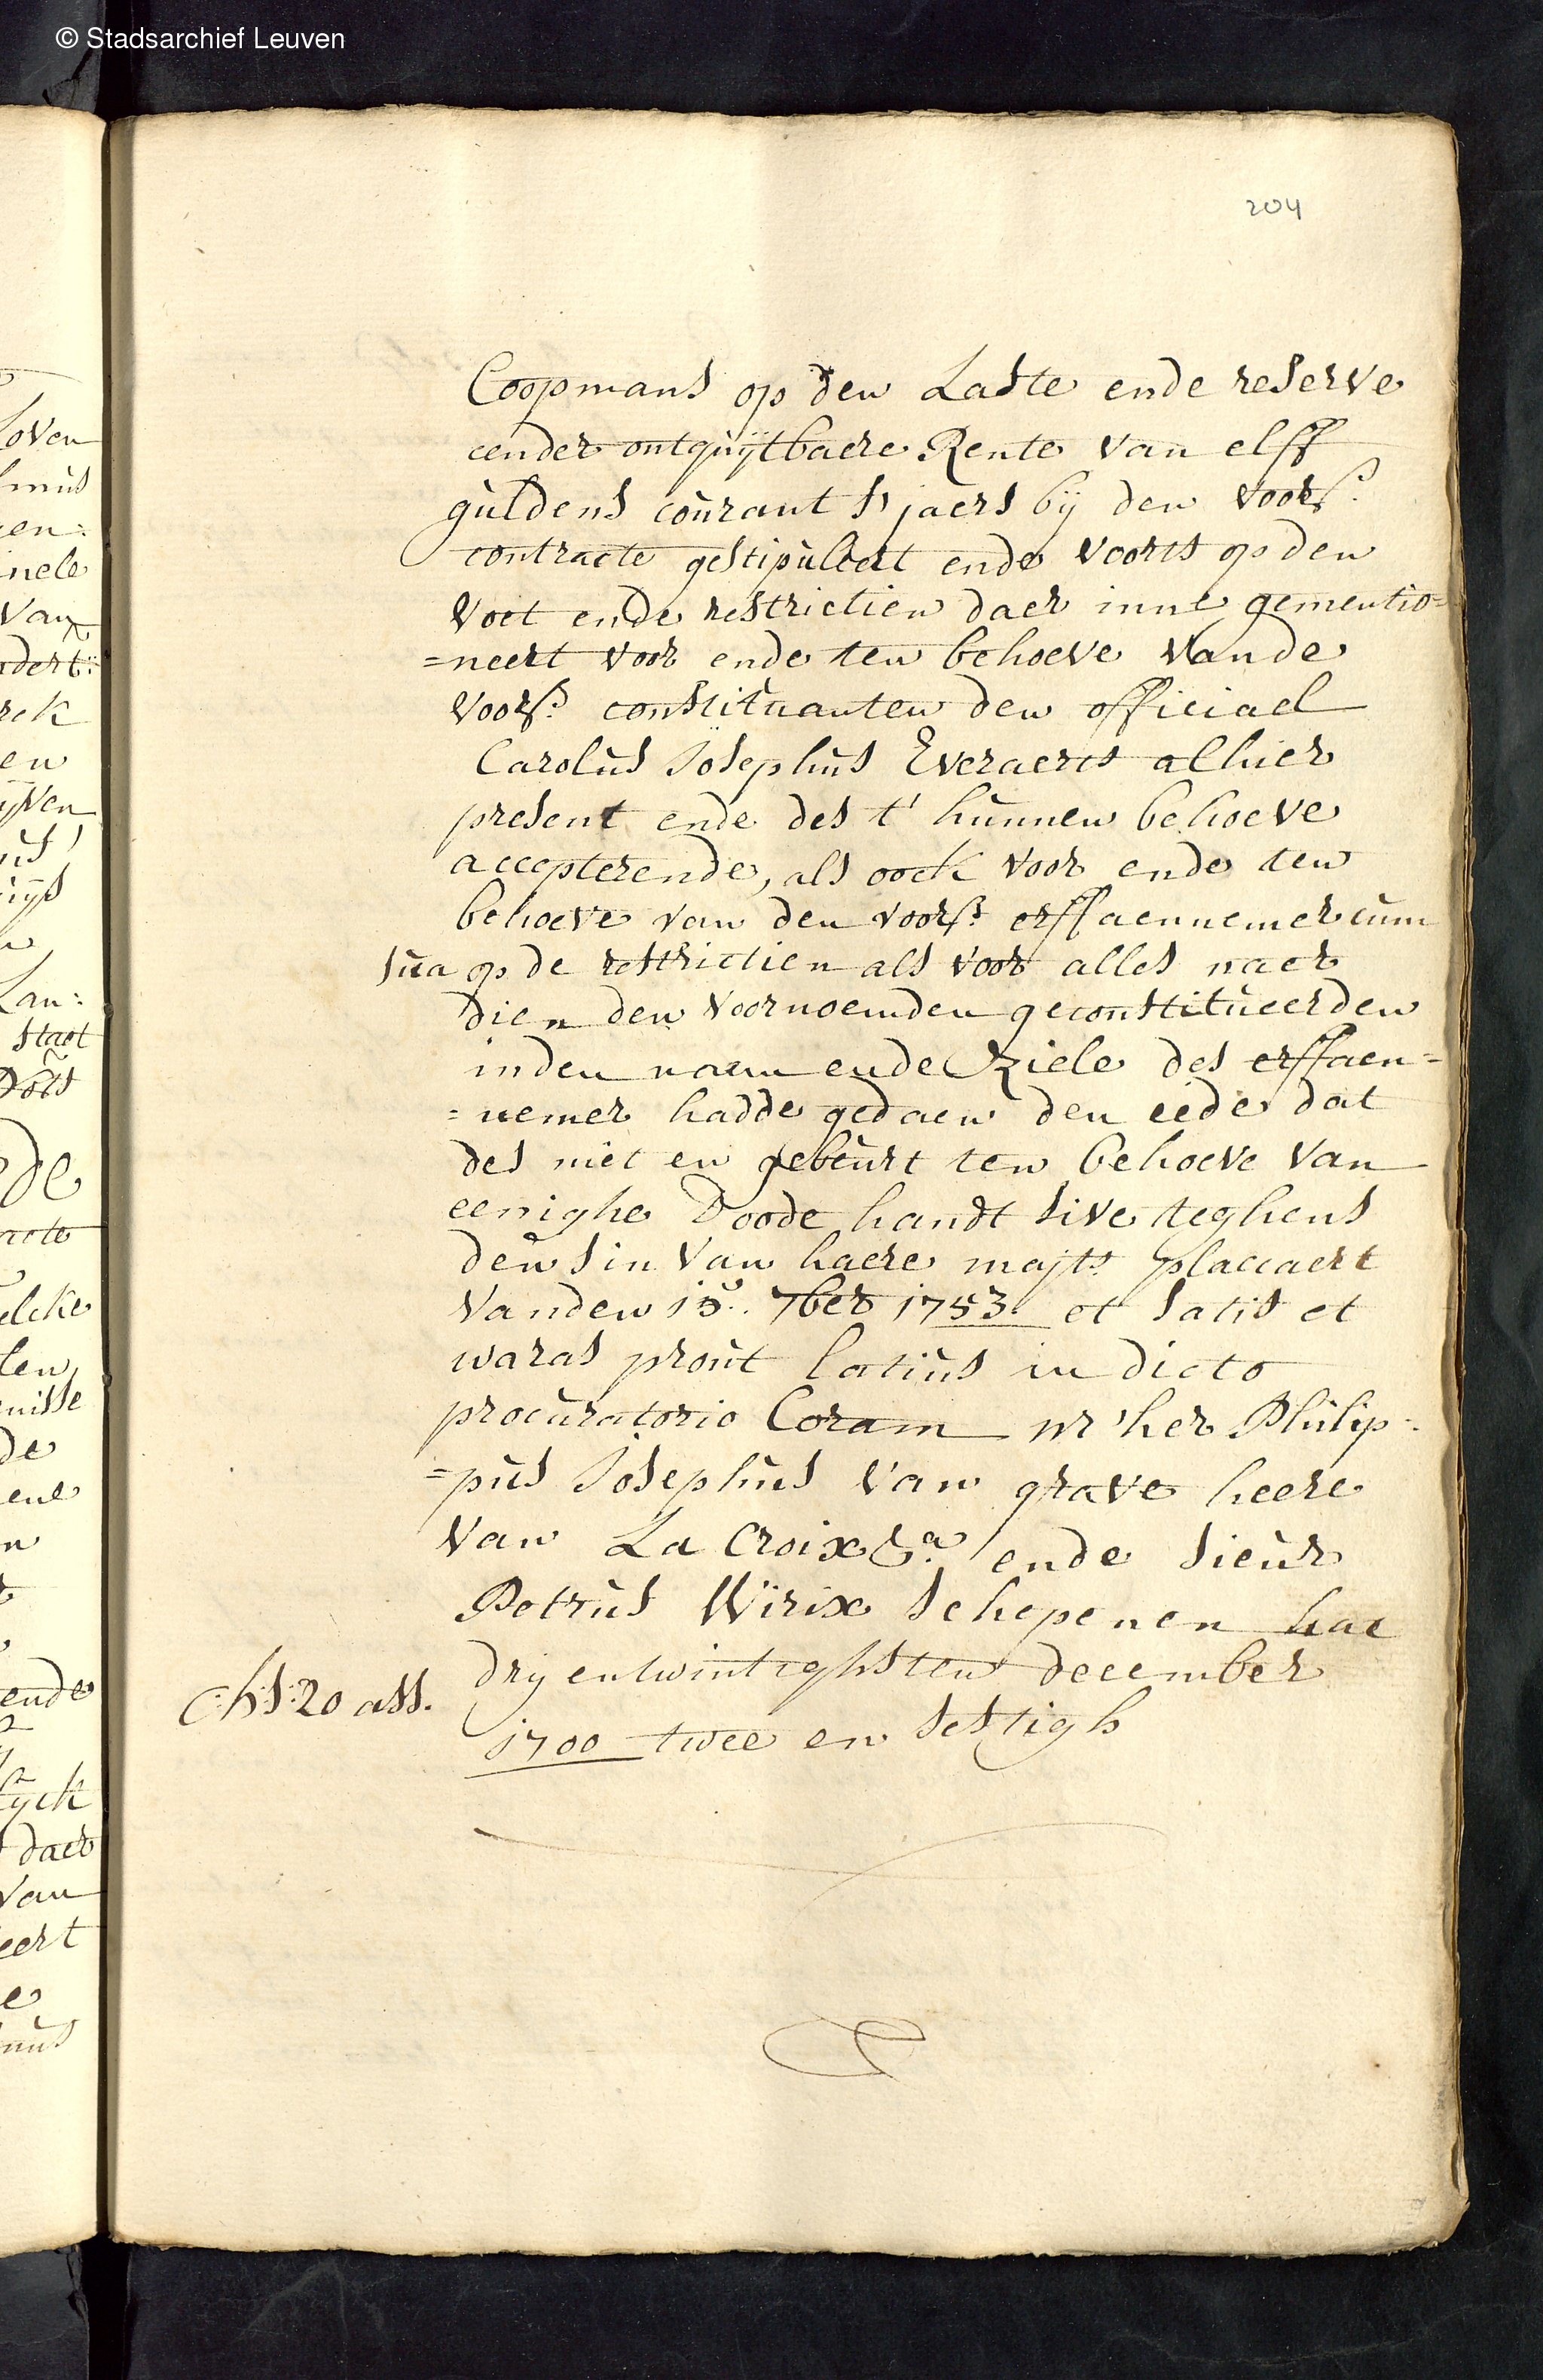 © Stadsarchief Leuven
204
Coopmans op den Laste ende reserve
eender ontquÿtbaere Rente van elff
guldens courant s'jaers bÿ den voors:
contracte gestipuleert ende voorts op den
voet ende restrictien daer inne gementio=
=neert voor ende ten behoeve vande
voors: constituanten den officiael
Carolus Josephus Everaerts alhier
present ende des t' hunnen behoeve
accepterende, als oock voor ende ten
behoeve van den voors: erffaennemer cum
sua op de restrictien als voor alles naer
dien den voornoemden geconstitueerden
inden naem ende Ziele des erffaen=
=nemer hadde gedaen den eede dat
des niet en gebeurt ten behoeve van
eenighe Doode handt sive teghens
den sin van haere majts. placcaert
vanden 15. 7ber 1753. et satis et
waras prout latius in dicto
procuratorio Coram mr her Philip=
=pus Josephus van grave heere
van La Croix &a. ende sieur
Petrus Wirix schepenen hac
drÿ entwintighsten december
1700 twee en sestigh
C:h:s: 20 ass.